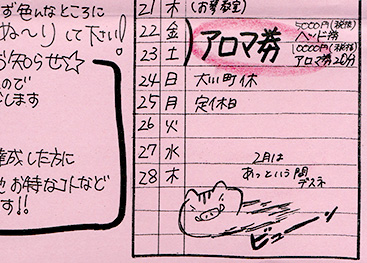 ず色んなところに
ぬ〜りして下さい!
お知らせ☆
ので
します
達成した方に
お得なコトなど
す!!
21 木 (お夢教室)
22 金
23 土
アロマ券
5000円(税抜)
ハンド券
10000円(税抜)
アロマ券20分
24 日 大川町休
25 月 定休日
26 火
27 水
28 木
2月は
あっという間
デスネ
ビューン